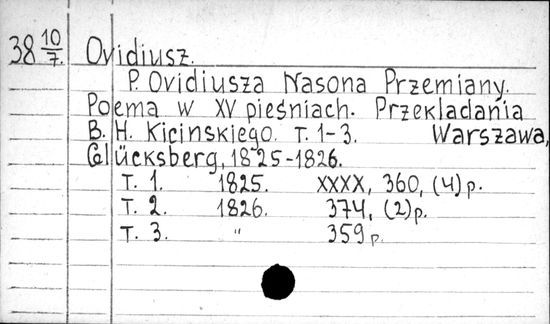 38 10/7. Ovidiusz.
P. Ovidiusza Nasona Przemiany.
Poema w XV pieśniach. Przekladania
B. H. Kicinskiego. T. 1-3. Warszawa,
Glücksberg, 1825-1826.
T. 1. 1825. XXXX, 360, (4)p.
T. 2. 1826. 374, (2)p.
T. 3. " 359 p.